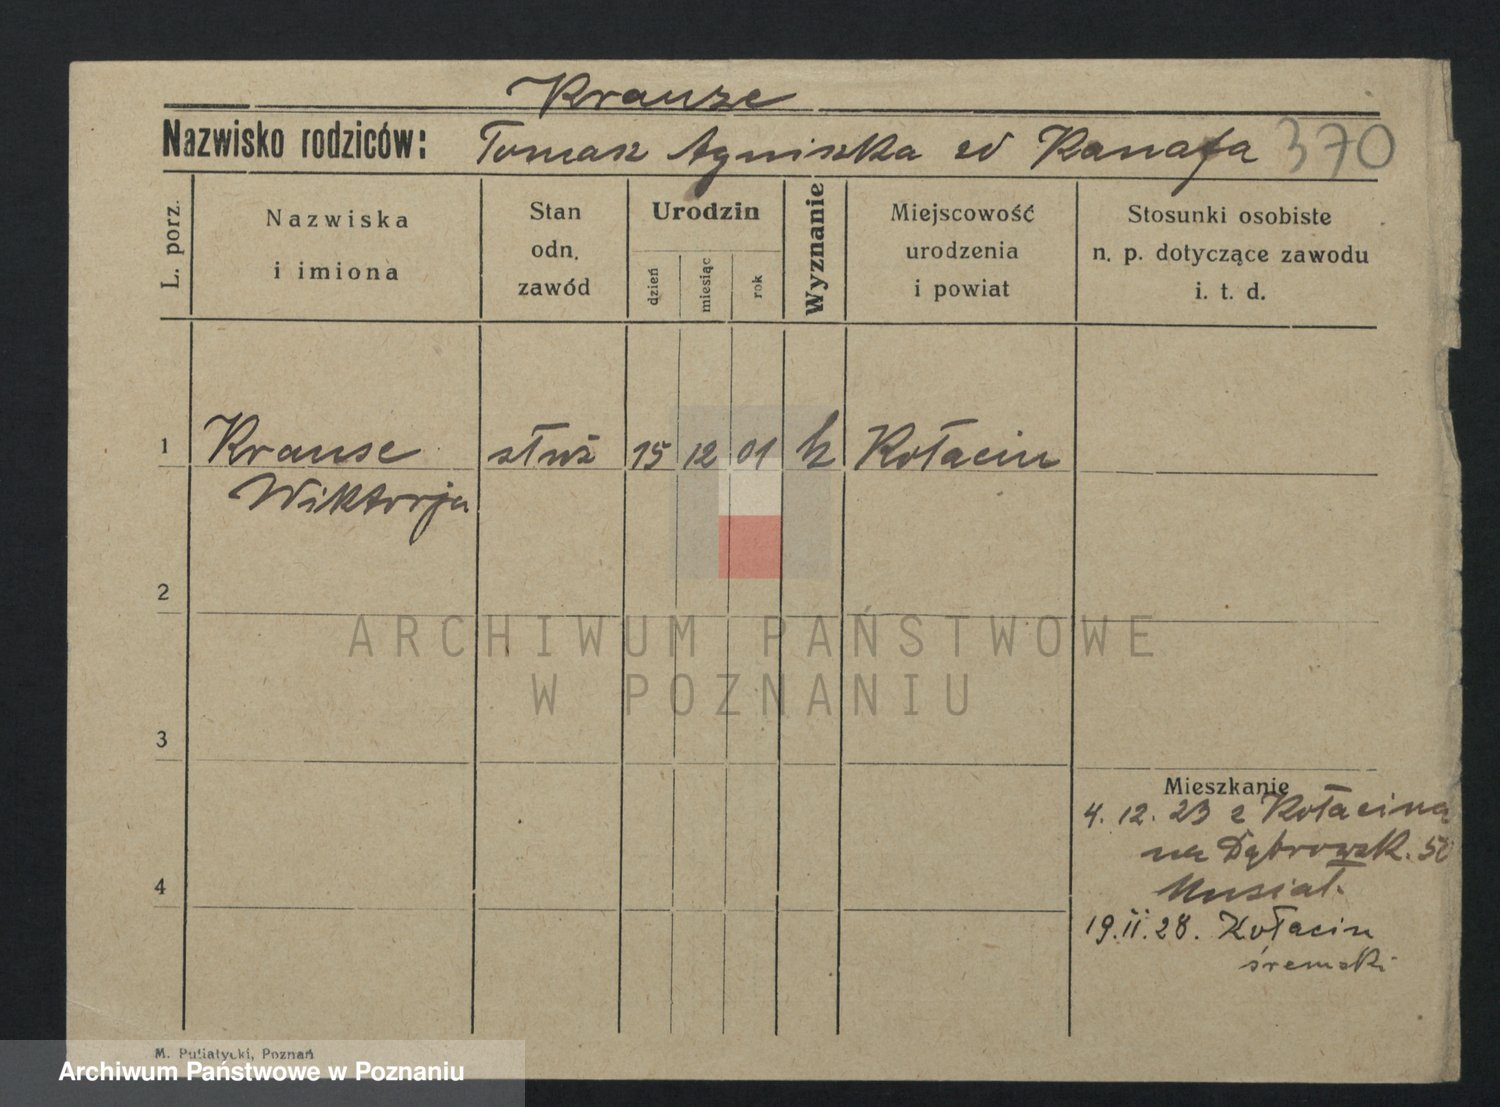 Krause
Nazwisko rodziców: Tomasz Agniszka zd Kanafa 370
L. porz.
Nazwiska
i imiona
Stan
odn.
zawód
Urodzin
dzień
miesiąc
rok
Wyznanie
Miejscowość
urodzenia
i powiat
Stosunki osobiste
n. p. dotyczące zawodu
i. t. d.
1 Krause służ 15 12 01 k Kołacin
Wiktorja
2
ARCHIWUM PAŃSTWOWE
W POZNANIU
3
Mieszkanie
4. 12. 23 z Kołacina
na Dąbrowsk. 50
4
Musiał.
19.II.28. Kołacin
śremski
M. Putiatycki, Poznań
Archiwum Państwowe w Poznaniu